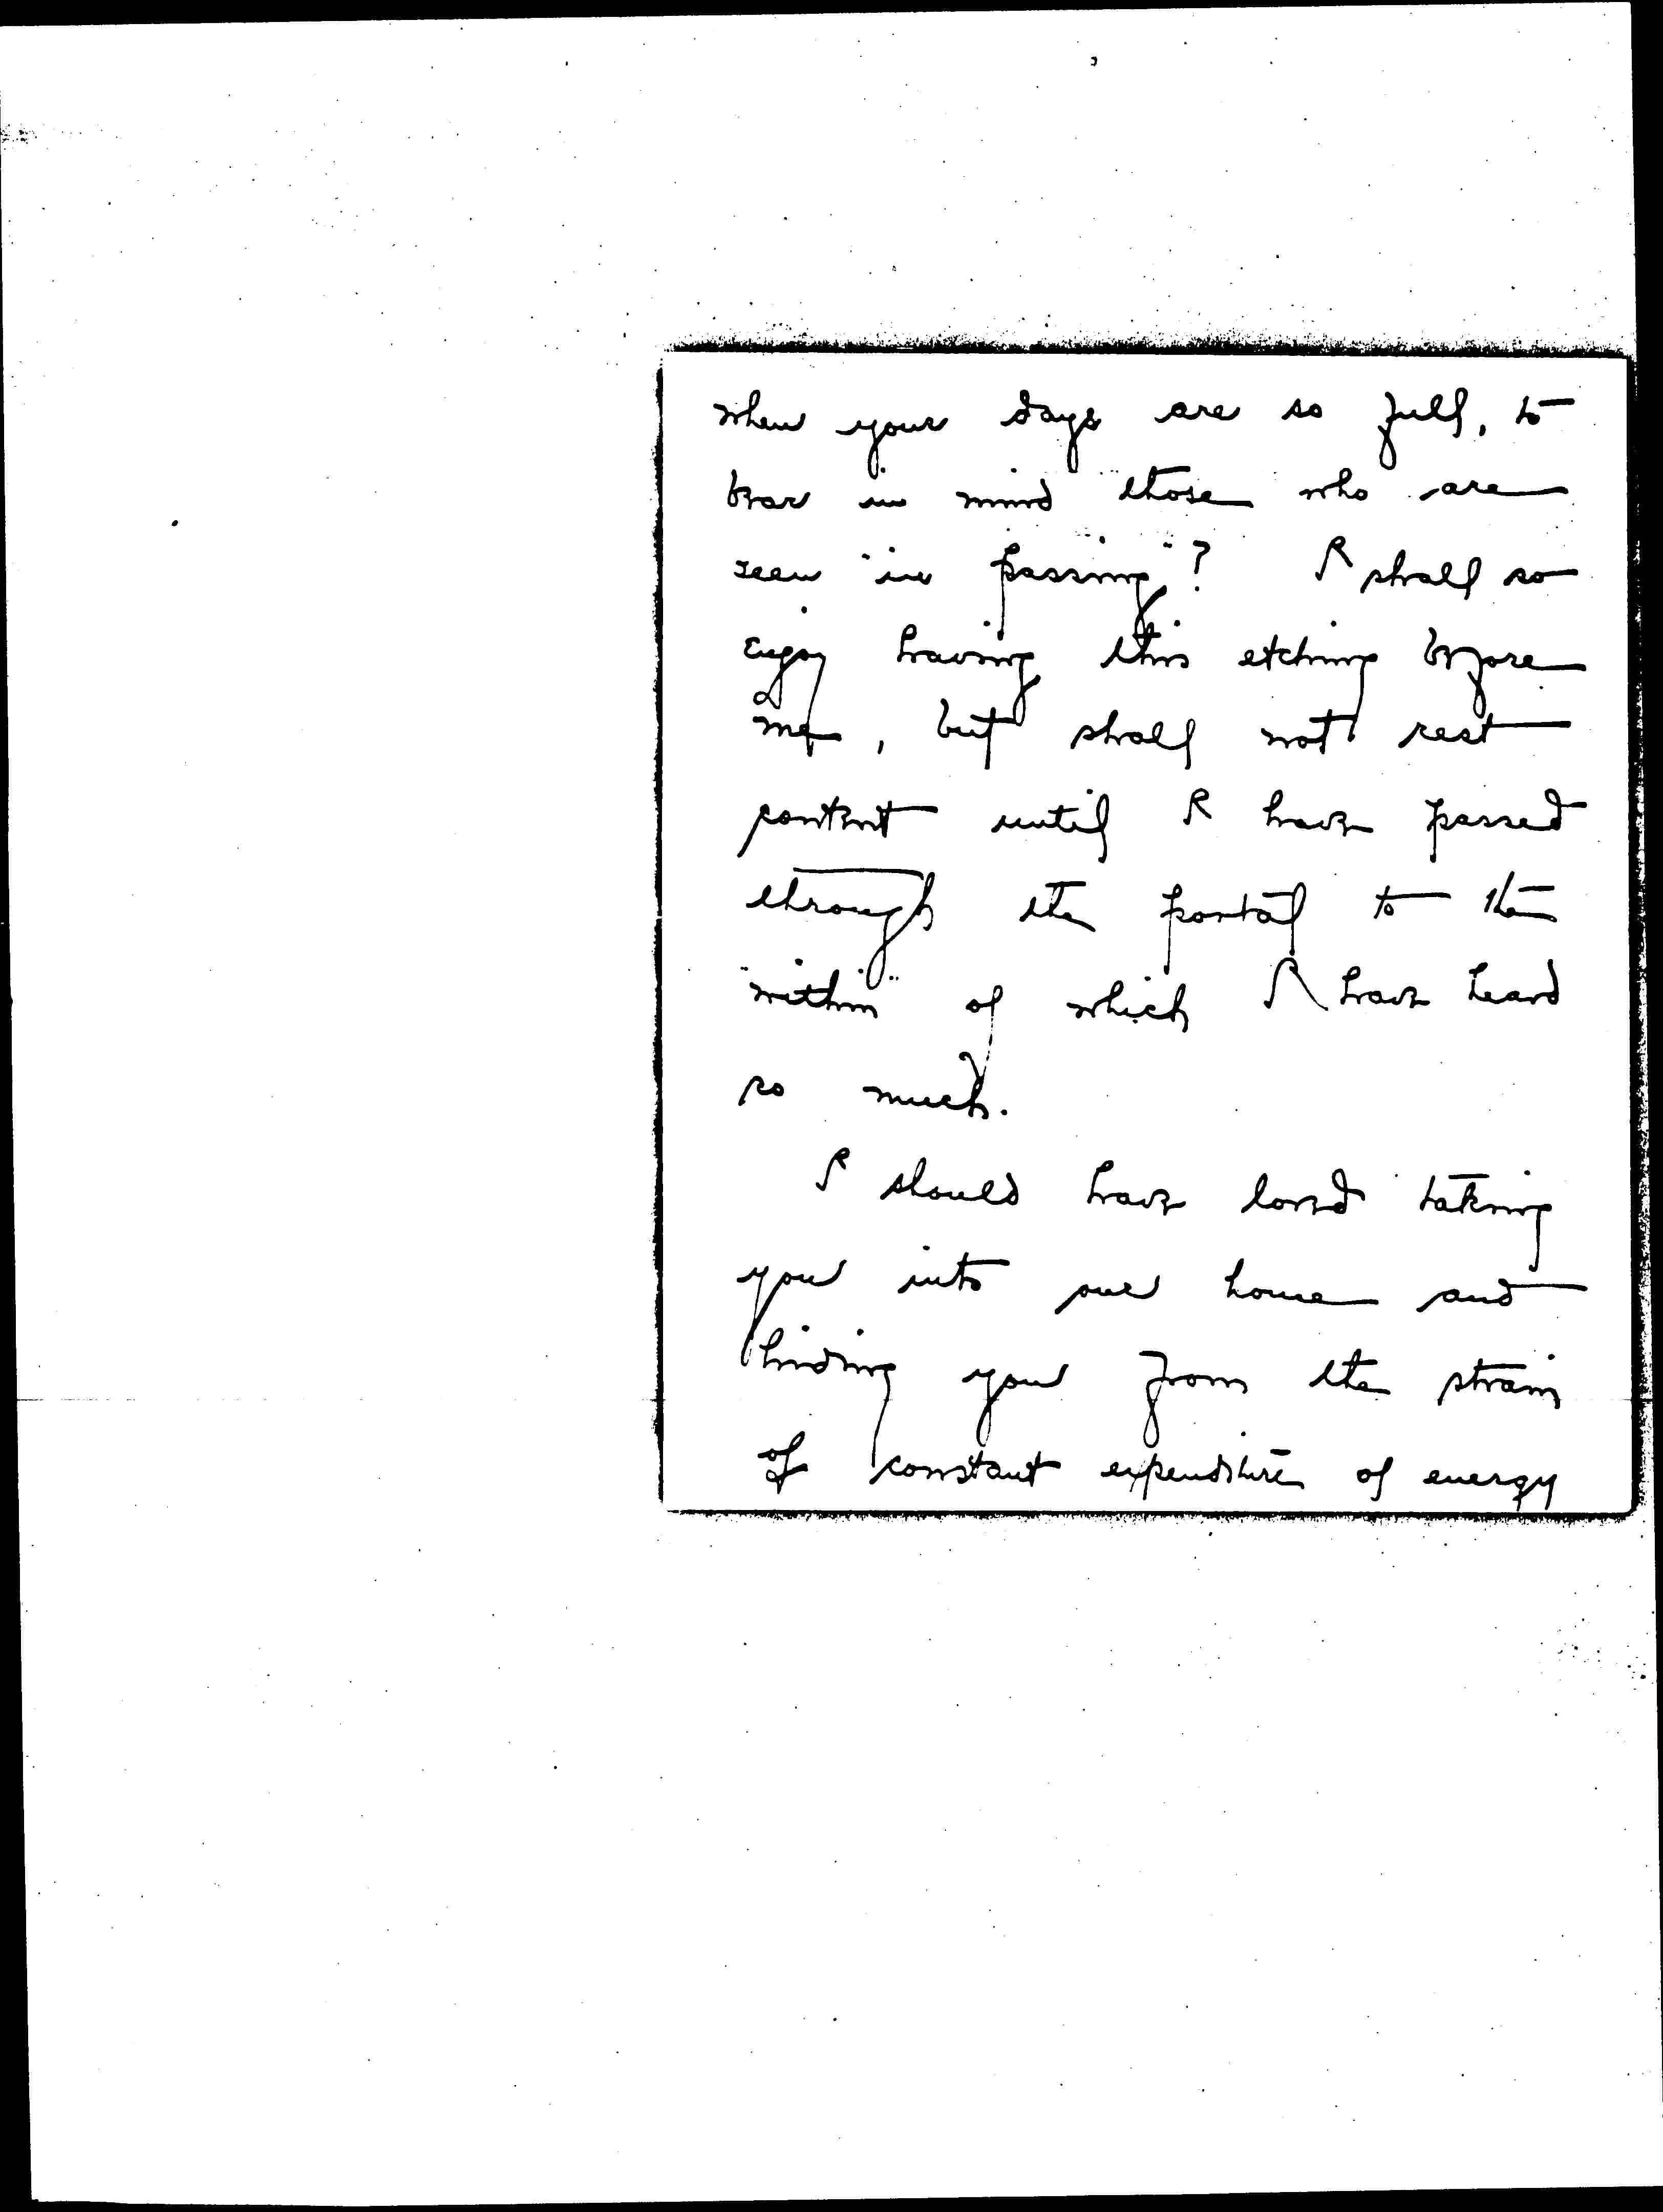 when your days are so full, to
bear in mind those who are
seen "in passing"? I shall so
enjoy having this etching before
me, but shall not rest
content until I have passed
through the portal to the
"within" of which I have heard
so much.
I should have loved taking
you into our home and
hiding you from the strain
of constant expenditure of energy